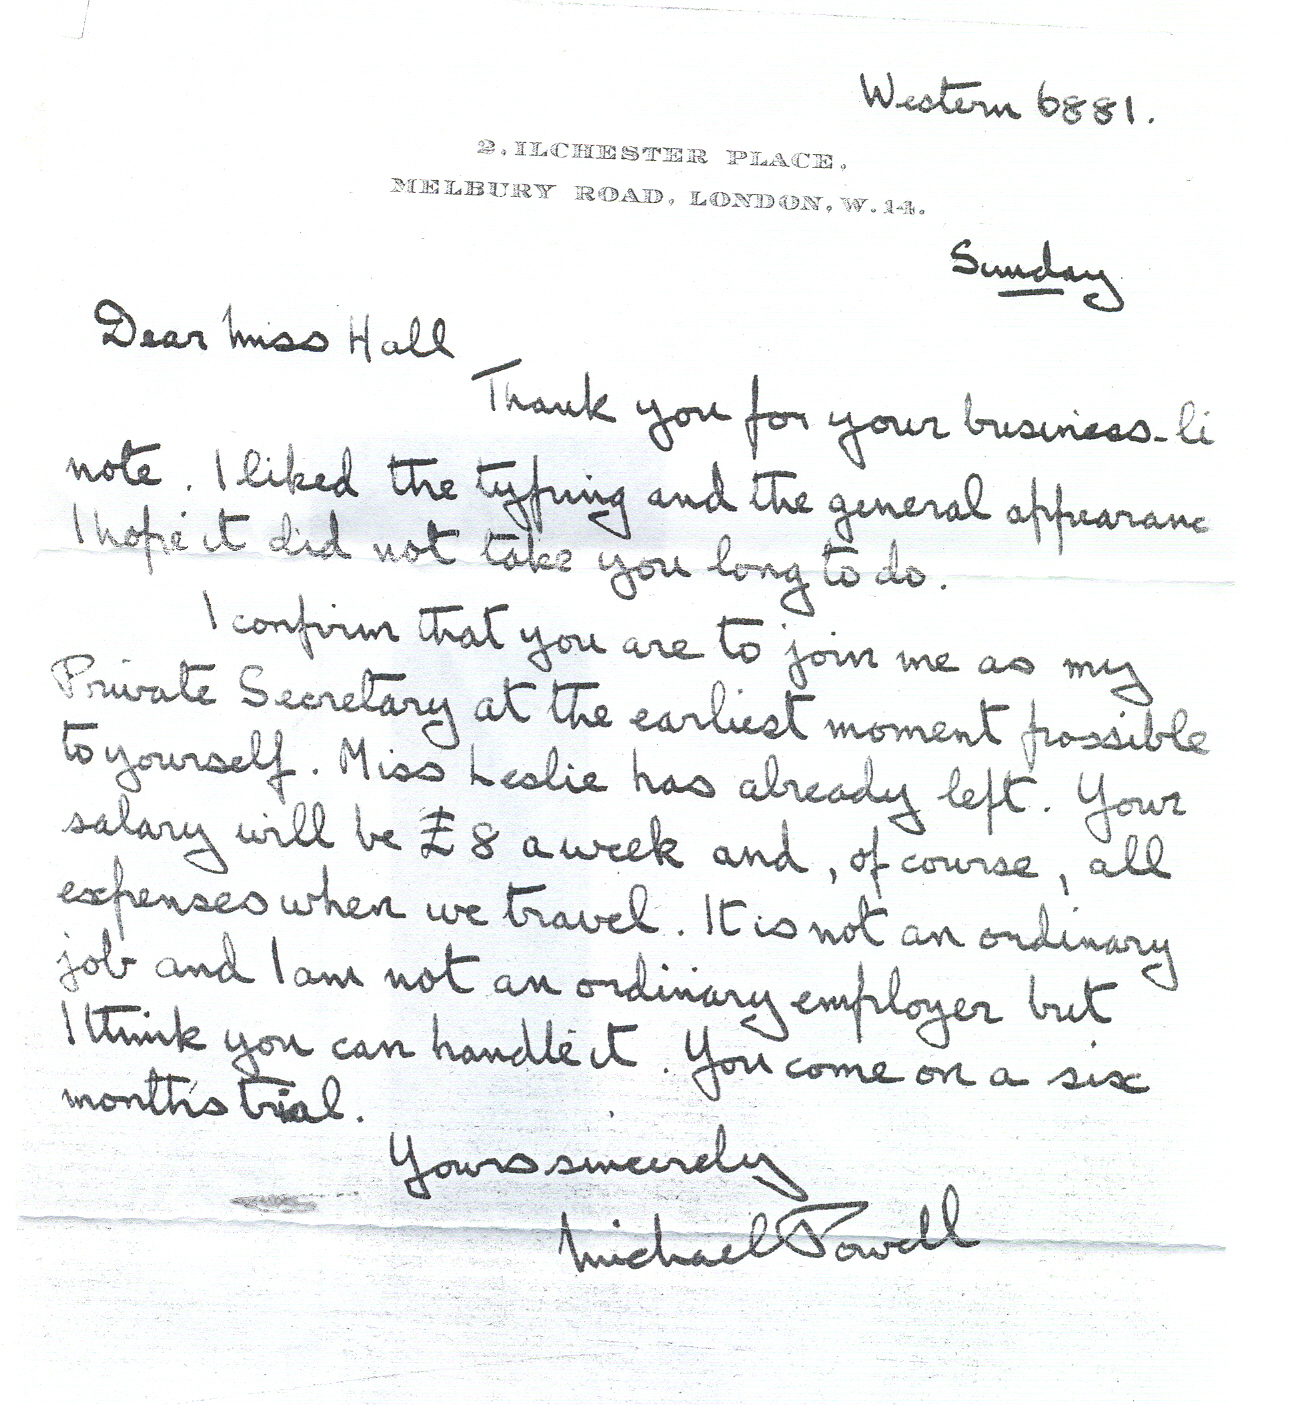 Western 6881.
2. ILCHESTER PLACE,
MELBURY ROAD, LONDON, W.14.
Sunday
Dear Miss Hall
Thank you for your business-li
note. I liked the typing and the general appearanc
I hope it did not take you long to do.
I confirm that you are to join me as my
Private Secretary at the earliest moment possible
to yourself. Miss Leslie has already left. Your
salary will be £8 a week and, of course, all
expenses when we travel. It is not an ordinary
job and I am not an ordinary employer but
I think you can handle it. You come on a six
months trial.
Yours sincerely
Michael Powell